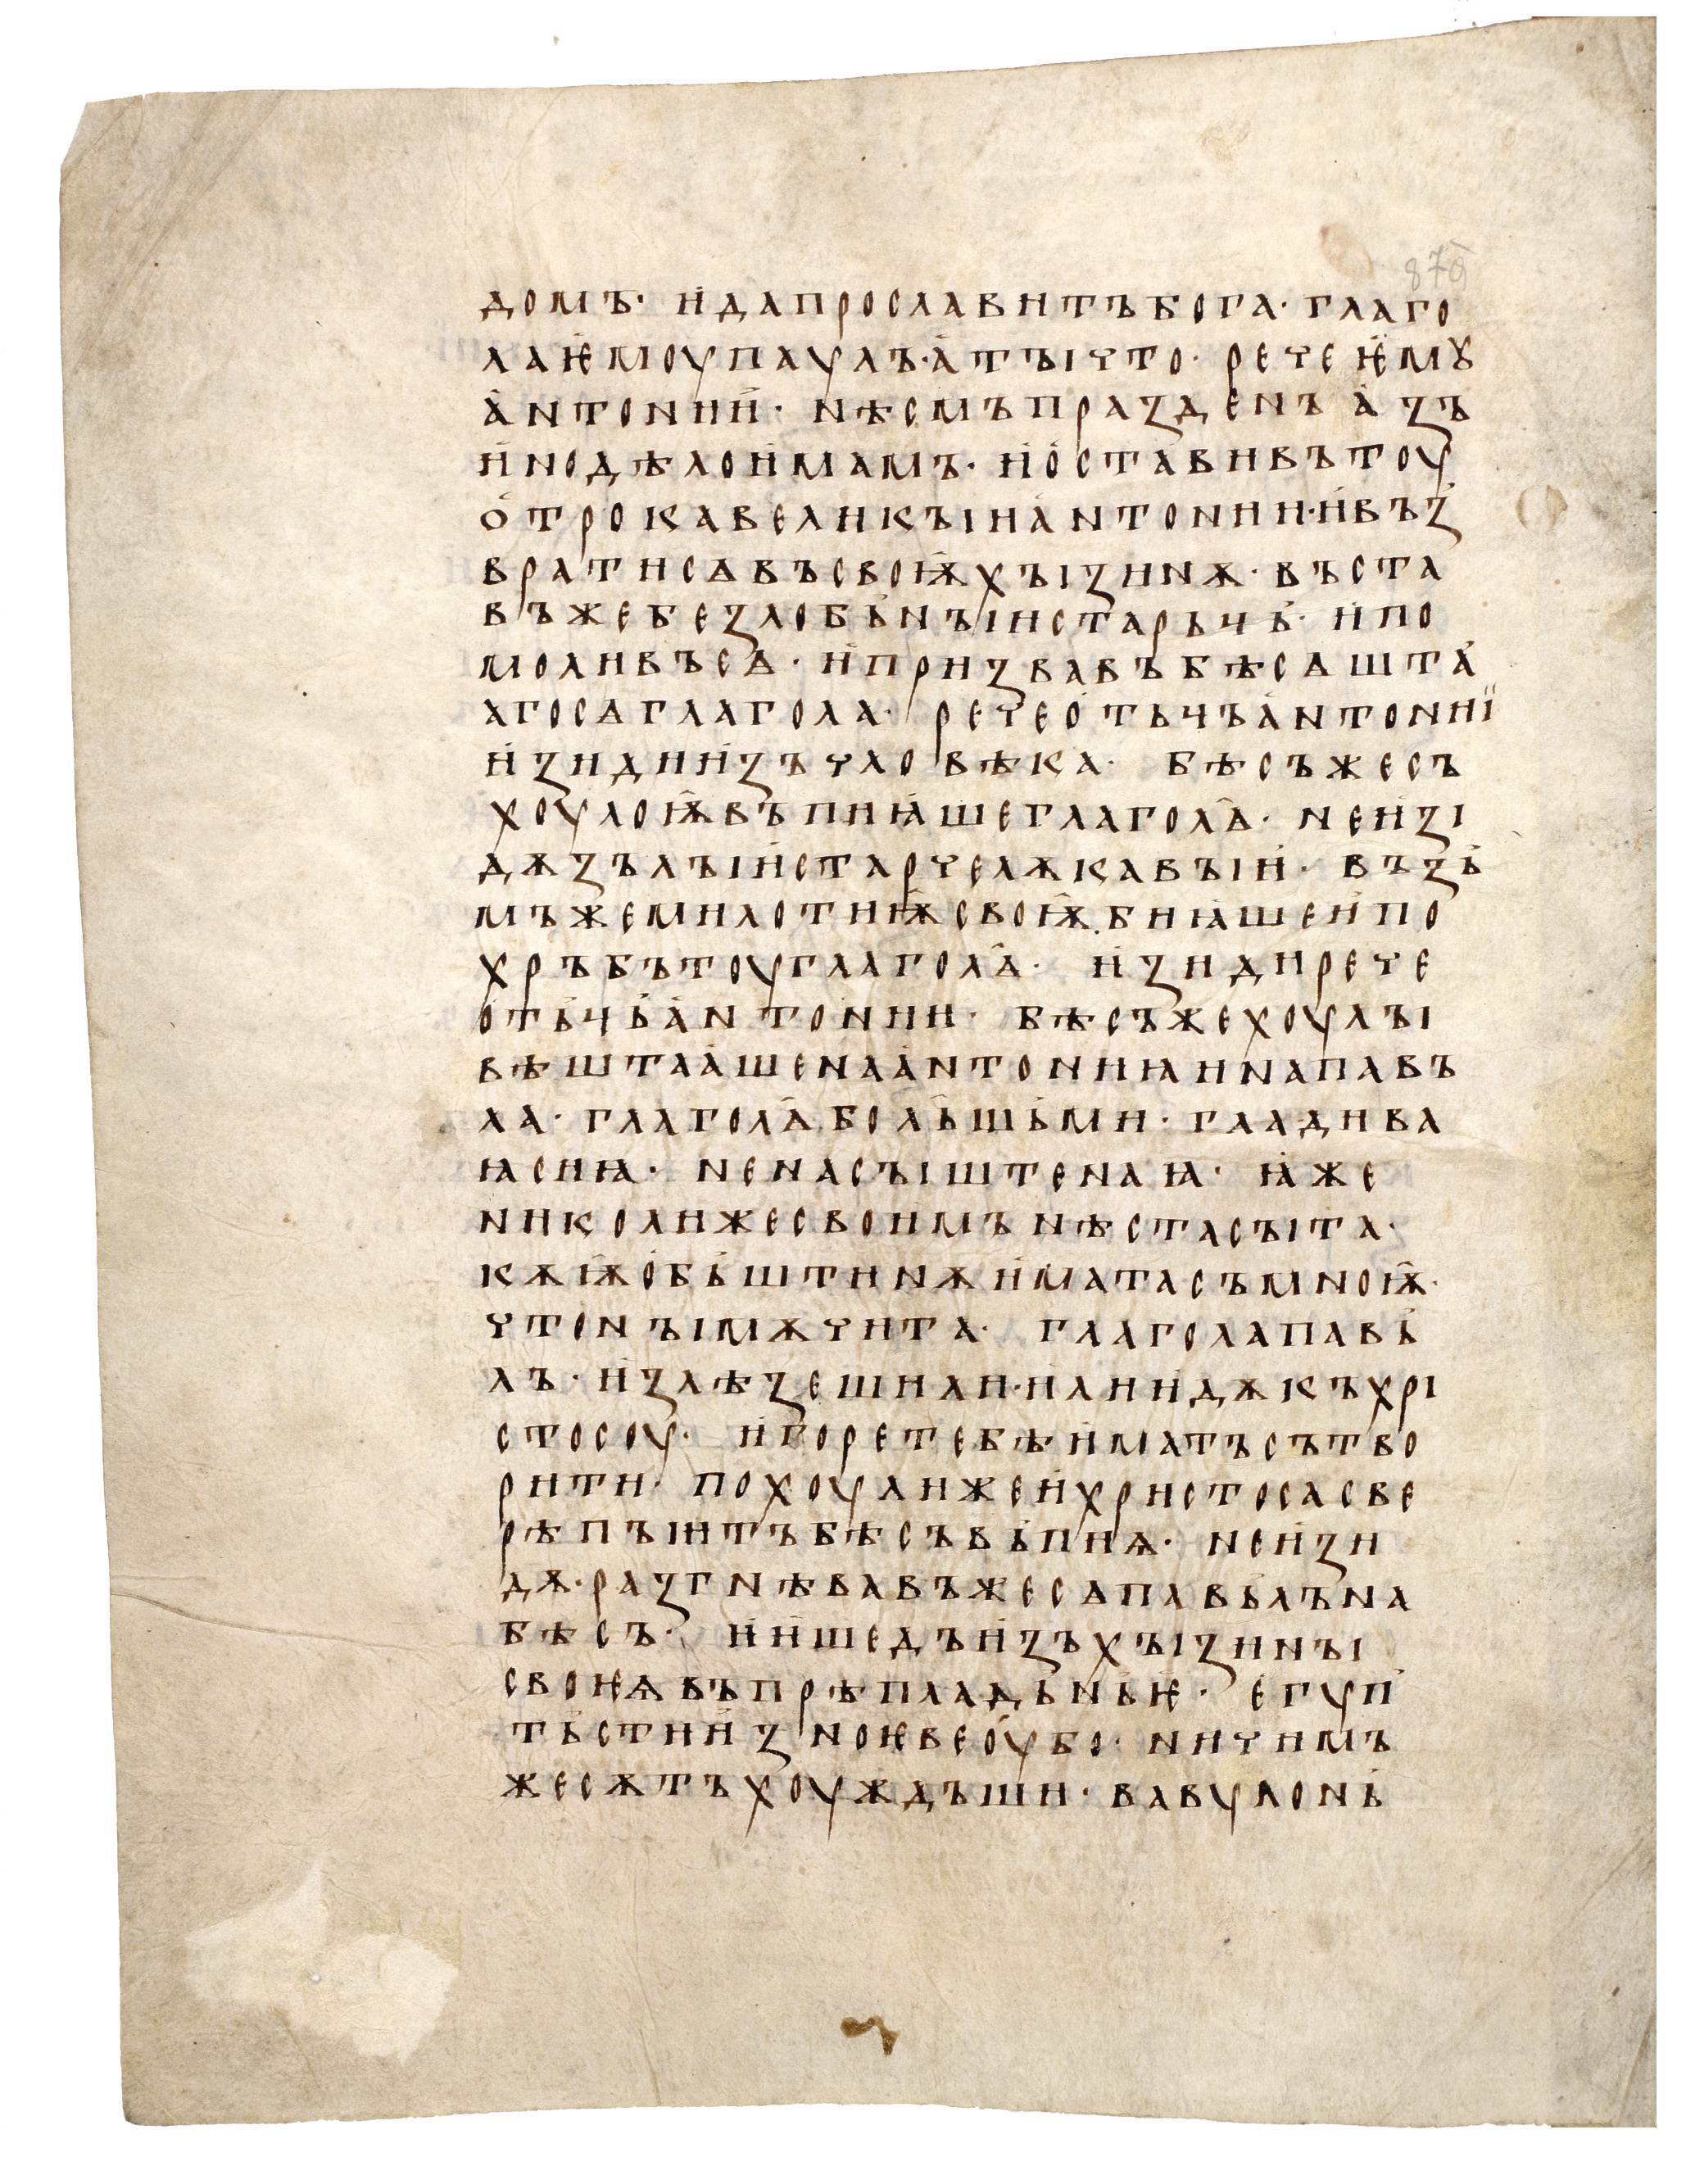 87б
домъ· и҅да прославитъ бога· глаго
ла ѥ҅моу паулъ· а҅ тꙑ что· рече ѥ҅мꙋ
а҅нтонии҅· нѣсмъ празденъ а҅зъ
и҅но дѣло и҅мамъ· и҅ о҅ставивъ тоу
о҅трока великꙑи а҅нтонии· и҅ въз҅
врати сѧ въ своѭ҄ хꙑзинѫ· въста
въ же безлоб҅ьнꙑи старьць҅· и҅ по
моливъ сѧ· и҅ призвавъ бѣсѧшта҅
аго сѧ глагола· рече о҅тьцъ а҅нтониї
и҅зиди и҅зъ чловѣка· бѣсъ же съ
хоулоѭ҄ въпиꙗ҅ше глагол҄ѧ· не и҅зі
дѫ зълꙑи҅ старче лѫкавꙑи҅· въз҅ь
мъ же милотиѭ҄ своѭ҄ биꙗ҅ше и҅ по
хръбътоу глагол҄ѧ· и҅зиди рече
о҅ть҅ць҅ а҅нтонии· бѣсъ же хоулꙑ
вѣштаа҅ше на а҅нтониꙗ и на павъ
ла· глагол҄ѧ бол҄ьшь҅ми· гладива
ꙗ сиꙗ· ненасꙑштенаꙗ· ꙗ҅же
николиже своимъ нѣста сꙑта·
кѫѭ҄ о҅бь҅штинѫ и҅мата съ мноѭ҄·
что нꙑ мѫчита· глагола павь҅
лъ· и҅злѣзеши ли· и҅ли и҅дѫ къ хрі
стосоу· и҅ горе тебѣ и҅матъ сътво
рити· похоули же и҅ христоса све
рѣпꙑи тъ бѣсъ вь҅пиѩ· не и҅зи
дѫ· разгнѣвавъ же сѧ павь҅лъ на
бѣсъ· и҅ и҅шедъ и҅зъ хꙑзинꙑ
своѥѩ въ прѣпладь҅нь҅ѥ҅· е҅гуп҅
ть҅стии҅ зноѥве о҅убо· ничимъ
же сѫтъ хоуждъши· вавулонь҅